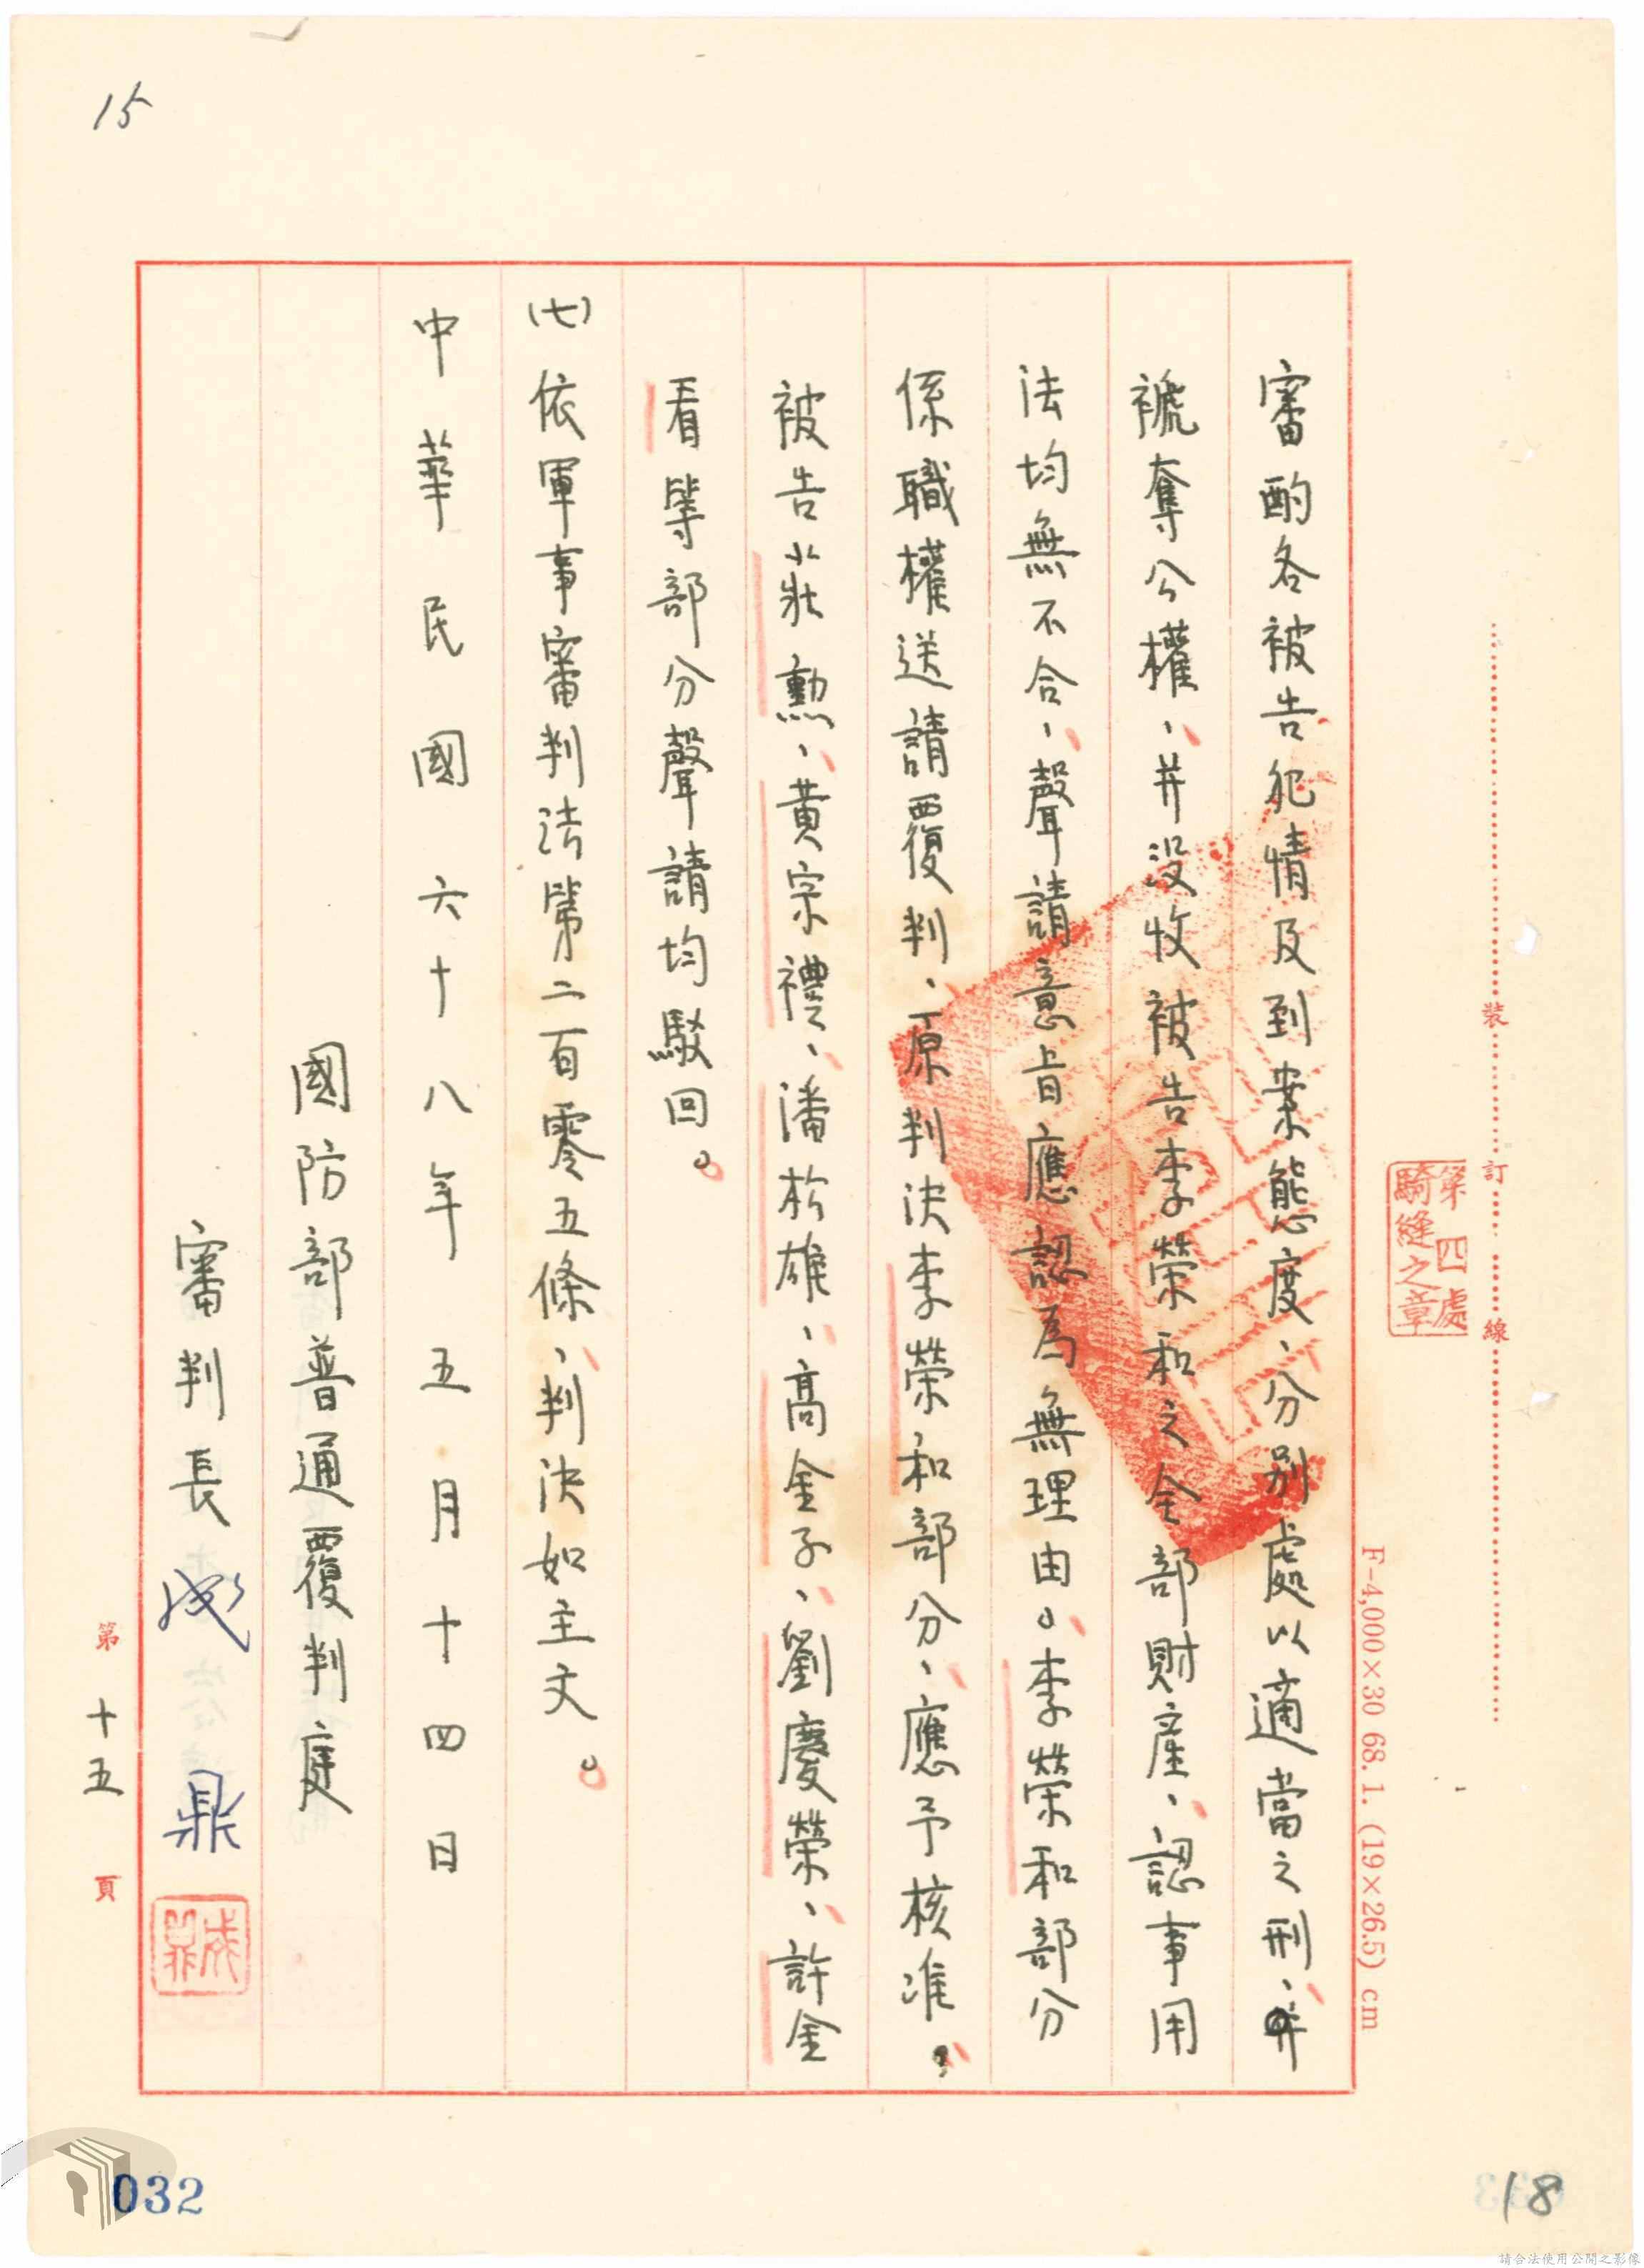 15
審酌各被告犯情及到案態度、分別處以適當之刑、并
褫奪公權、并沒收被告李榮和之全部財產、認事用
法均無不合、聲請意旨應認為無理由。李榮和部分
係職權送請覆判、原判決李榮和部分、應予核准。
被告莊勲、黃宗禮、潘松雄、高金子、劉慶榮、許金
看等部分聲請均駁回。
(七)依軍事審判法第二百零五條、判決如主文。
中華民國六十八年五月十四日
國防部普通覆判庭
審判長成鼎
成鼎
第十五頁
裝訂線
第四處
騎縫之章
F-4,000×30 68.1. (19×26.5) cm
032
18
請合法使用公開之影像